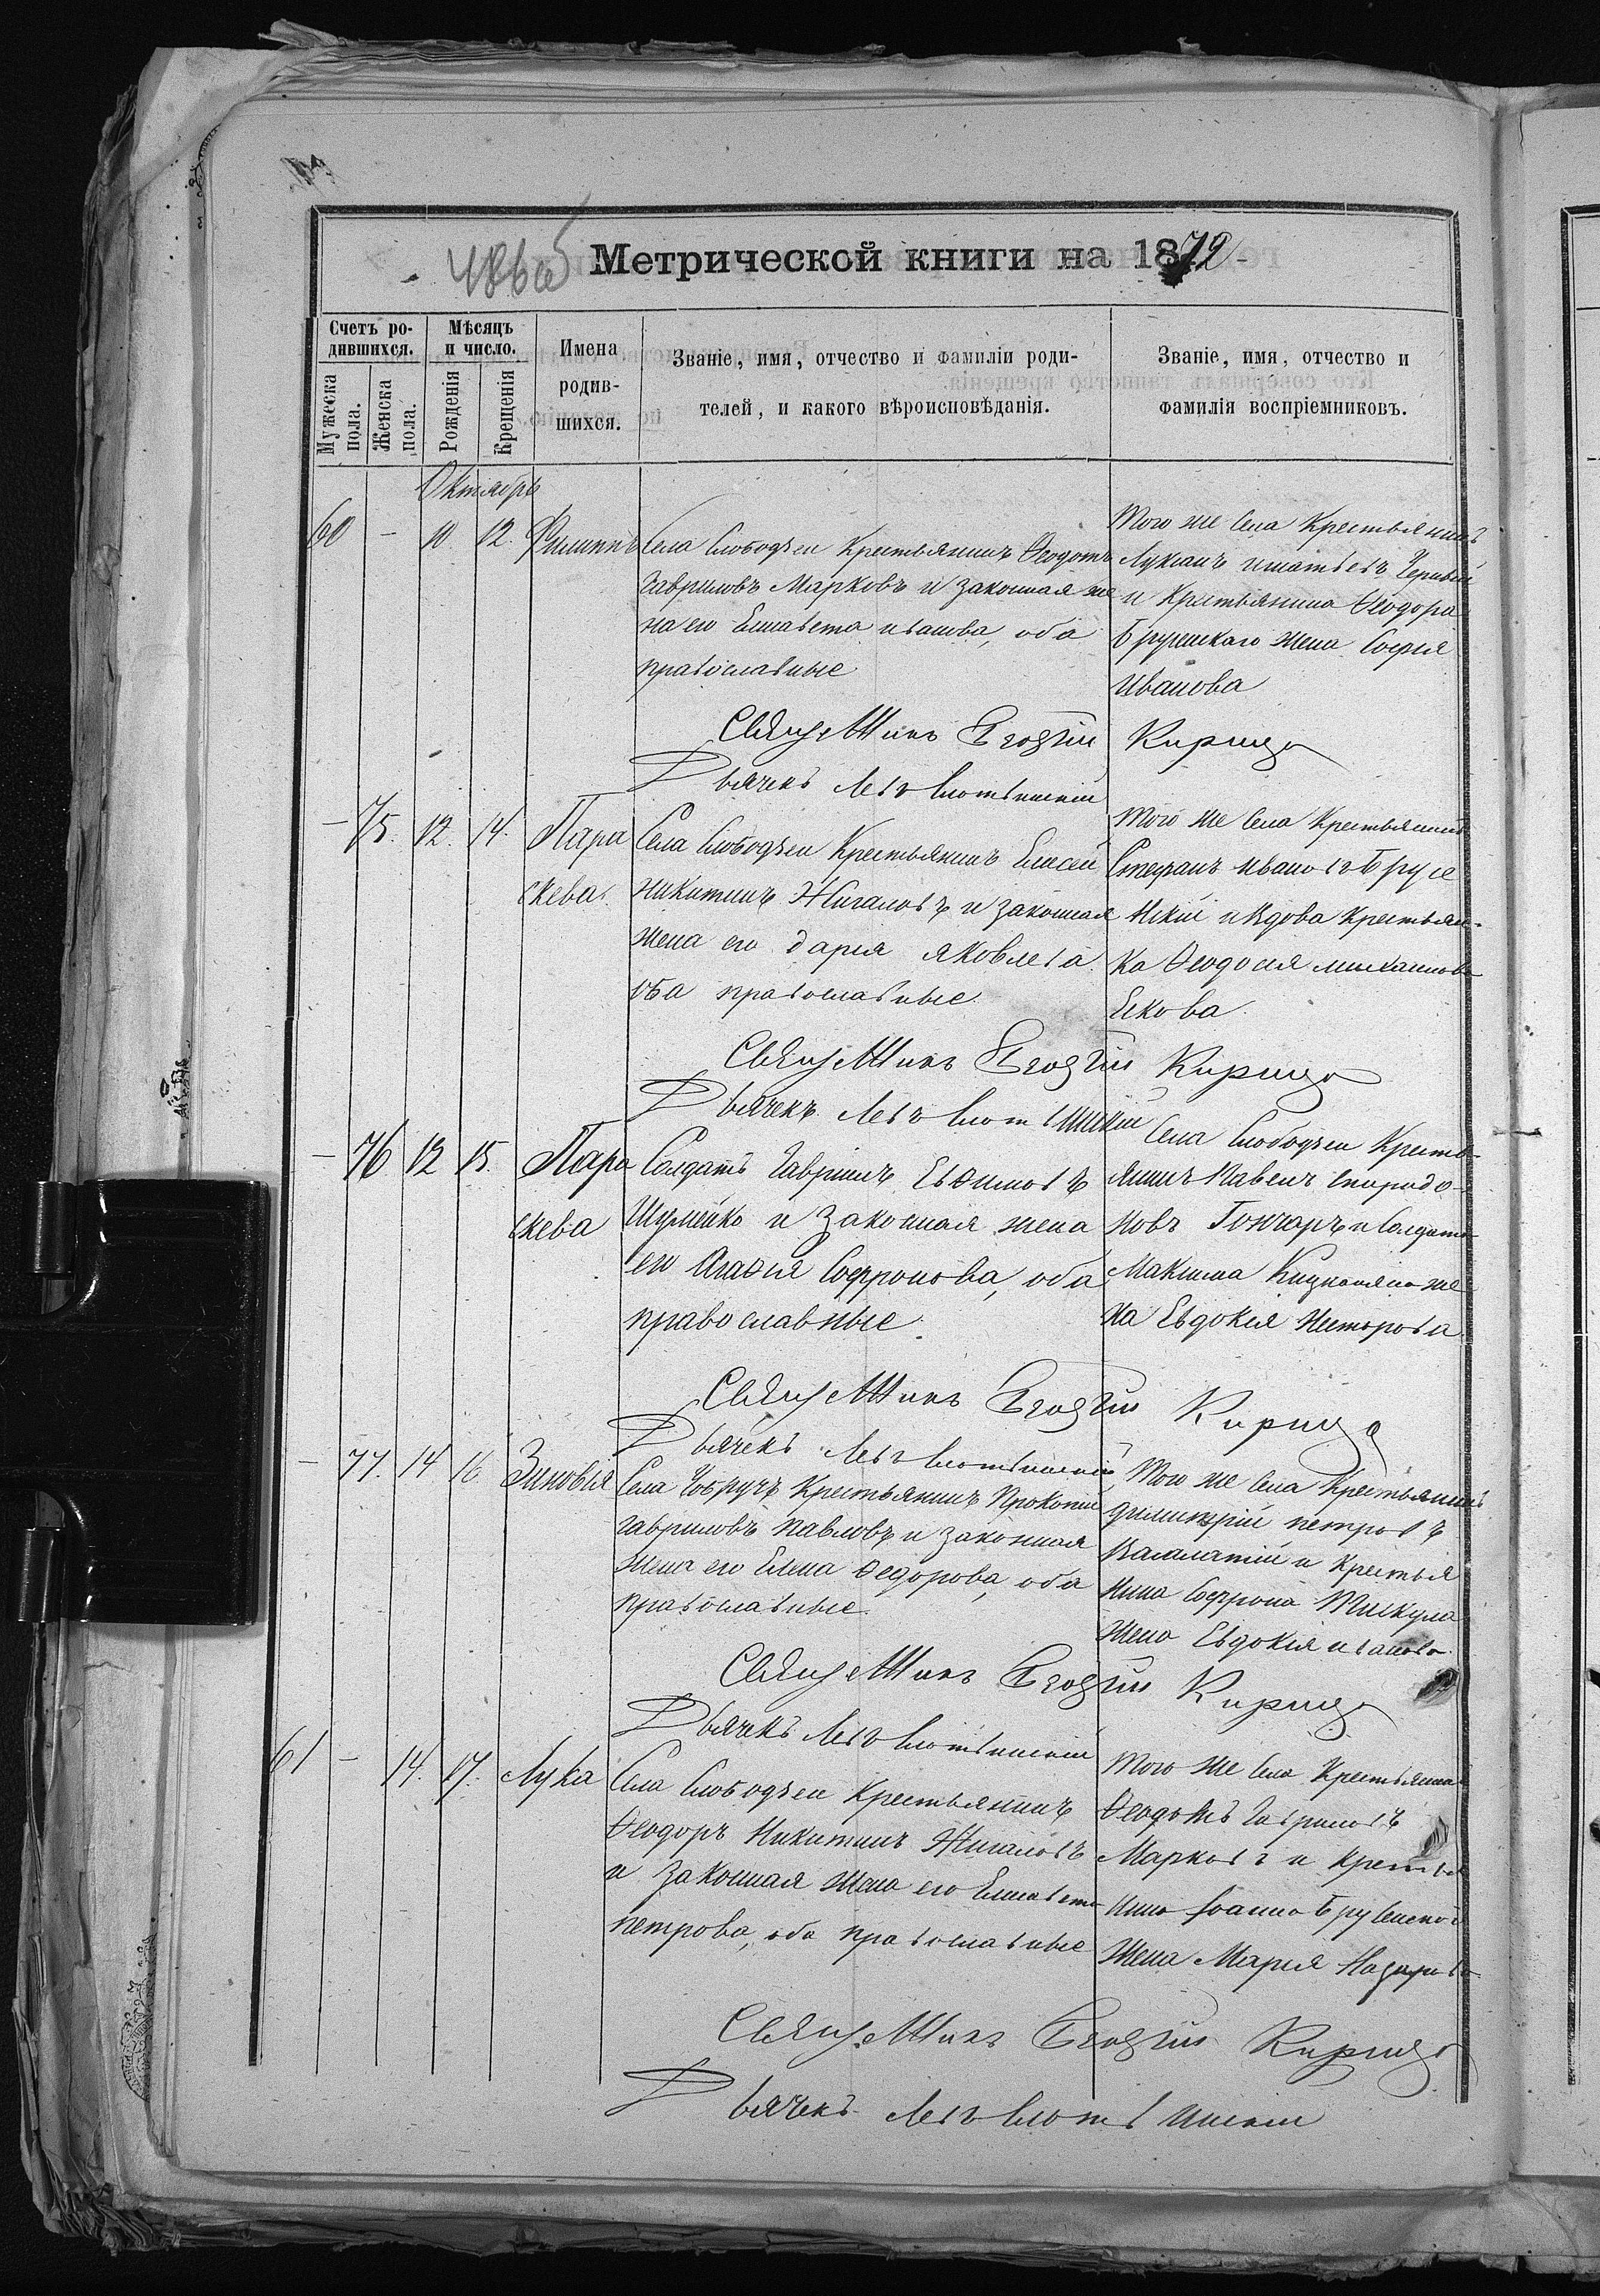 486об
Метрической книги на 1872
Счетъ ро-
дившихся.
Мѣсяцъ
и число.
Имена
родив-
шихся.
Званіе, имя, отчество и фамиліи роди-
телей, и какого вѣроисповѣданія.
Званіе, имя, отчество и
фамилія воспріемниковъ.
Мужеска
пола.
Женска
пола.
Рожденія
Крещенія
Октябрь
60 - 10. 12. Филиппъ
Села Слободзеи Крестьянинъ Ѳеодотъ
Гавриловъ Марковъ и законная же
на его Елисавета Иванова, оба
православные
Того же Села Крестьянинъ
Лукианъ Игнатьевъ
и Крестьянина Ѳеодора
жена Софія
Иванова
Священникъ Георгій Кирица
Дьячекъ Левъ
- 75. 12. 14. Пара
скева.
Села Слободзеи Крестьянинъ Елисей
Никитинъ Жигаловъ и законная
жена его Дарія Яковлева
оба православные.
Того же Села Крестьянинъ
Стефанъ Ивановъ Брусе
нскій и Вдова Крестьян-
ка Ѳеодосія Михайлова
Священникъ Георгій Кирица
Дьячекъ Левъ
- 76 12 15. Пара
скева
Солдатъ Гавріилъ Евѳимовъ
Шумейко и законная жена
его Агаѳія Софронова, оба
православные.
Села Слободзеи Кресть-
янинъ Павелъ Спиридо-
новъ Гончаръ и Солдата
Максима же
на Евдокія Нестерова.
Священникъ Георгій Кирица
Дьячекъ Левъ
- 77. 14 16. Зиновія
Села Чобручъ Крестьянинъ Прокопій
Гавриловъ Павловъ и законная
жена его Елена Ѳедорова, оба
православные.
Того же Села Крестьянинъ
Димитрій Петровъ
и Крестья
нина Софрона
жена Евдокія Иванова.
Священникъ Георгій Кирица
Дьячекъ Левъ
61 - 14. 17. Лука
Села Слободзеи Крестьянинъ
Ѳеодоръ Никитинъ Жигаловъ
и законная жена его Елисавета
Петрова, оба православные
Того же Села Крестьянинъ
Ѳеодотъ Гавриловъ
Марковъ и Крестья
нина Іоанна
жена Марія Назарова
Священникъ Георгій Кирица
Дьячекъ Левъ